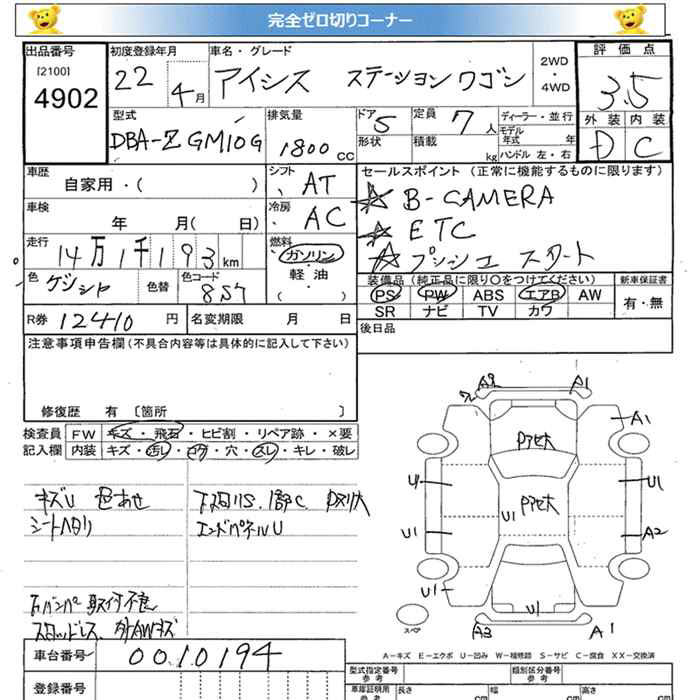 完全ゼロ切りコーナー
出品番号 初度登録年月 車名・グレード 2WD・4WD 評価点
[2100]
4902 22 4月 アイシス ステーションワゴン 3.5
外装 内装
D C
型式 排気量 ドア 定員 ディーラー・並行
DBA-ZGM10G 1800cc 5 7人 モデル年式 年
形状 積載 kg ハンドル 左・右
車歴 シフト セールスポイント(正常に機能するものに限ります)
自家用・( ) AT ☆ B-CAMERA
車検 冷房 ☆ ETC
年 月( 日) AC ☆ プッシュスタート
走行 燃料
14万1千193km ガソリン
軽油
( )
色 色替 色コード 装備品(純正品に限り○をつけてください) 新車保証書
PS PW ABS エアB AW 有・無
SR ナビ TV カワ
R券 12410円 名変期限 月 日 後日品
注意事項申告欄(不具合内容等は具体的に記入して下さい)
修復歴 有 〔箇所 〕
検査員 FW キズ・飛石・ヒビ割・リペア跡・×要
記入欄 内装 キズ・汚レ・コゲ・穴・スレ・キレ・破レ
キズU 色あせ
シートヘタリ
エンドパネルU
下バンパー取付不良
スタッドレス、外AWキズ
A2 A1
A1
U1 U1
U1
U1 A2
U1
U1
A3 A1
スペア
A-キズ E-エクボ U-凹み W-補修跡 S-サビ C-腐食 XX-交換済
車台番号 0010194
型式指定番号 参考 類別区分番号 参考
登録番号 車庫証明用 参考 長さ cm 幅 cm 高さ cm